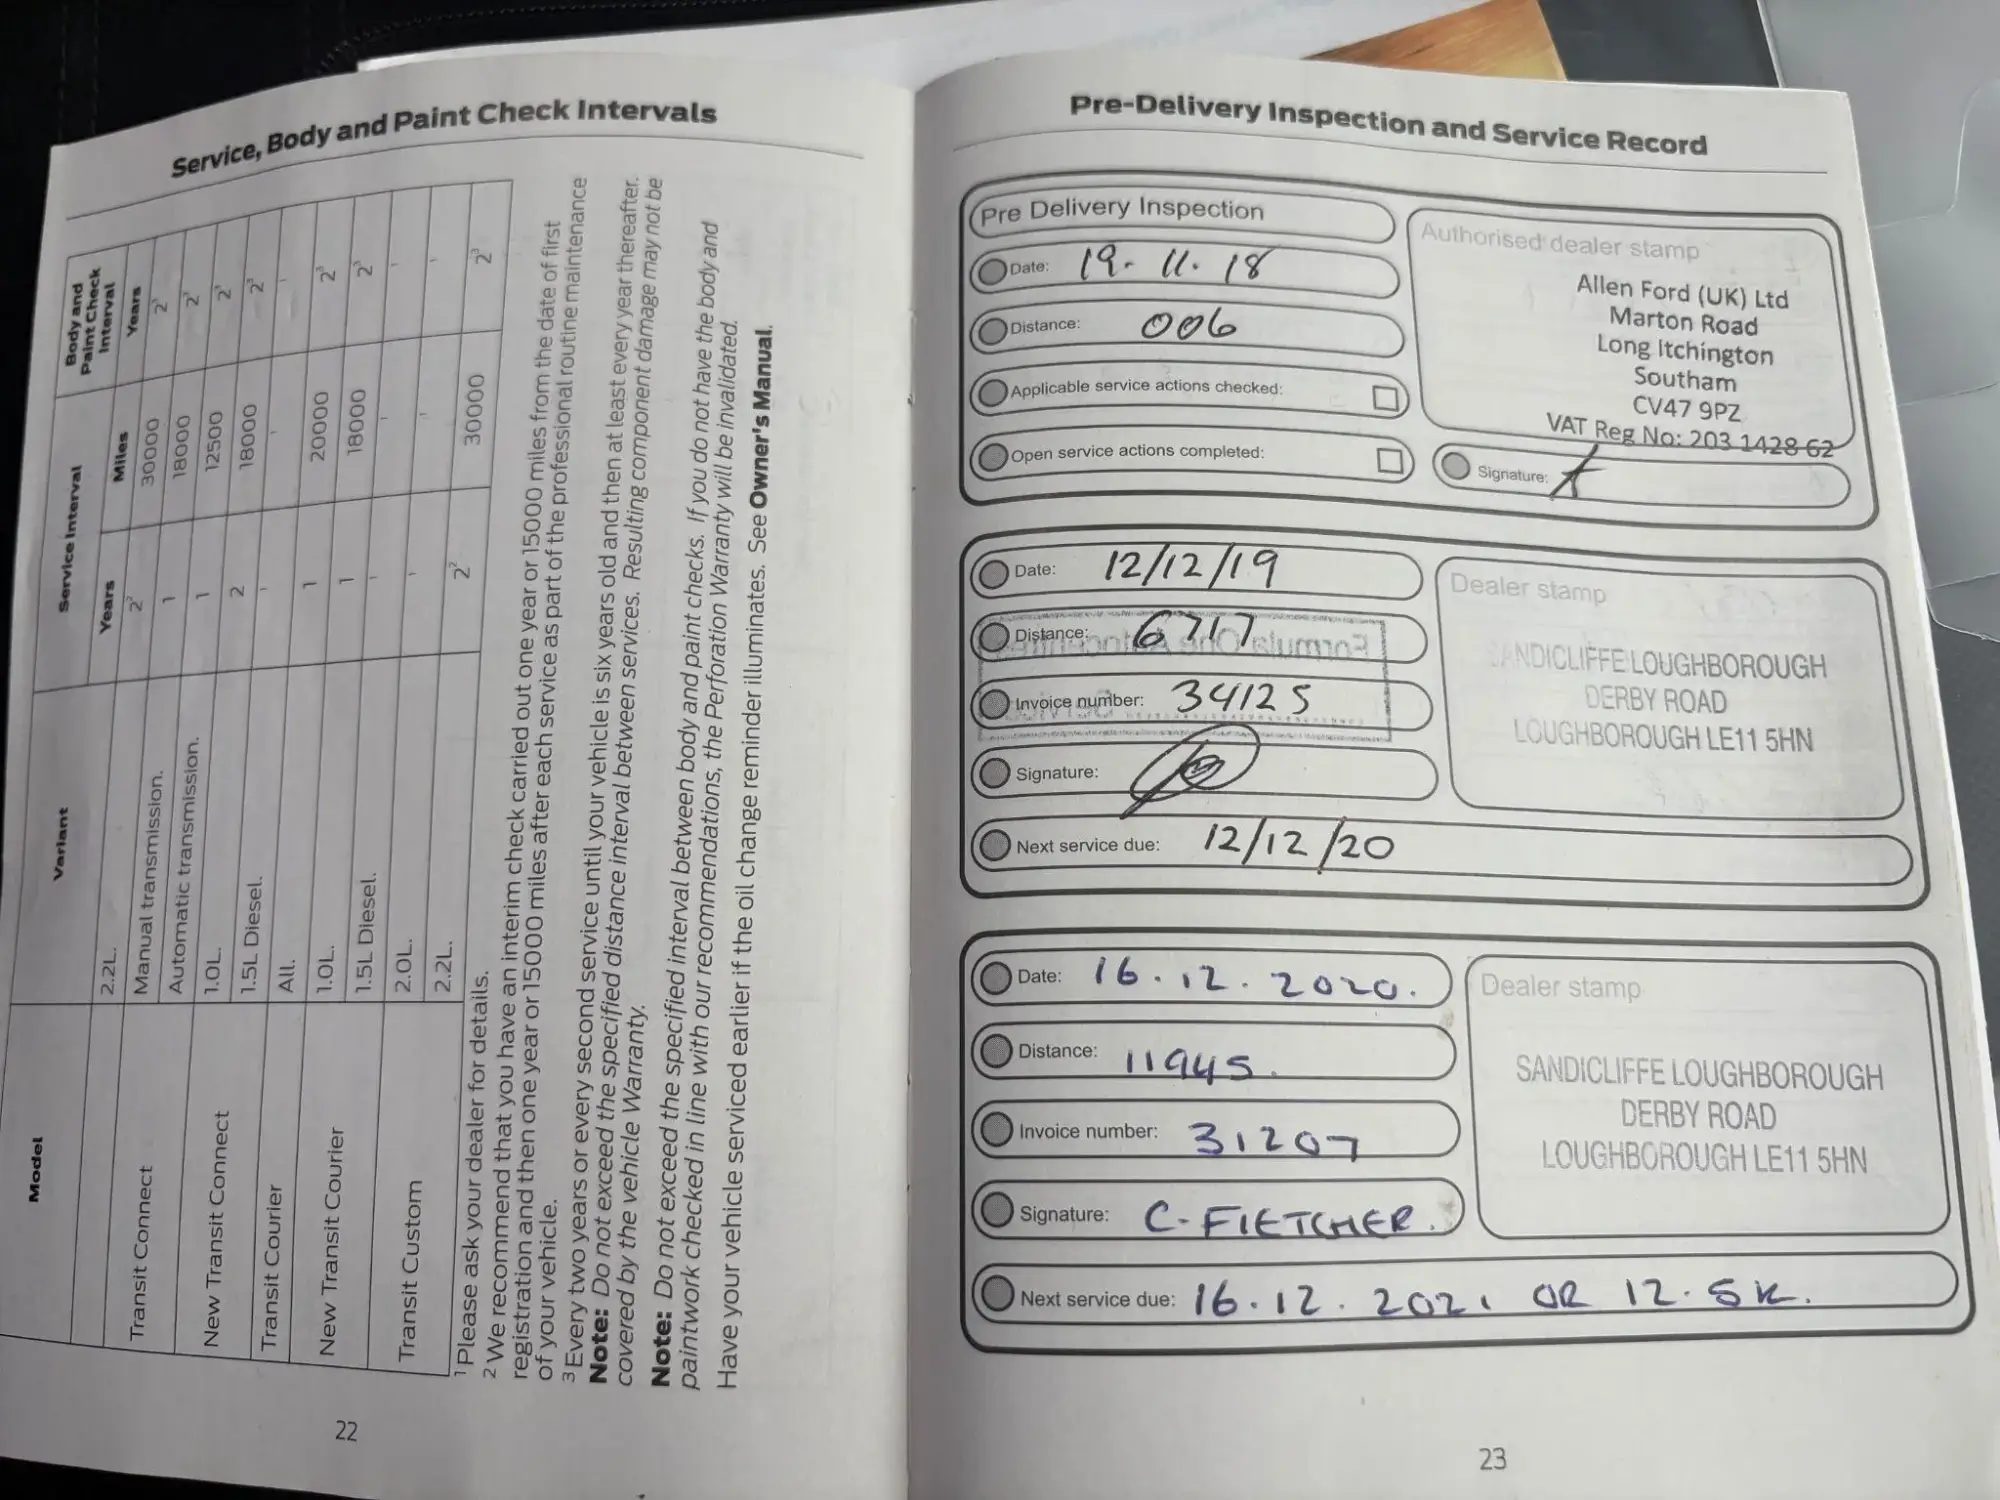 Service, Body and Paint Check Intervals
Model Variant Service Interval Body and Paint Check Interval
Years Miles Years
2.2L.
Transit Connect Manual transmission. 2² 30000 2³
Automatic transmission. 1 18000 2³
New Transit Connect 1.0L. 1 12500 2³
1.5L Diesel. 2 18000 2³
Transit Courier All. - - -
New Transit Courier 1.0L. 1 20000 2³
1.5L Diesel. 1 18000 2³
Transit Custom 2.0L. - - -
2.2L. 2² 30000 2³
1 Please ask your dealer for details.
2 We recommend that you have an interim check carried out one year or 15000 miles from the date of first
registration and then one year or 15000 miles after each service as part of the professional routine maintenance
of your vehicle.
3 Every two years or every second service until your vehicle is six years old and then at least every year thereafter.
Note: Do not exceed the specified distance interval between services. Resulting component damage may not be
covered by the vehicle Warranty.
Note: Do not exceed the specified interval between body and paint checks. If you do not have the body and
paintwork checked in line with our recommendations, the Perforation Warranty will be invalidated.
Have your vehicle serviced earlier if the oil change reminder illuminates. See Owner's Manual.
22
Pre-Delivery Inspection and Service Record
Pre Delivery Inspection
Date: 19.11.18
Distance: 006
Applicable service actions checked:
Open service actions completed:
Authorised dealer stamp
Allen Ford (UK) Ltd
Marton Road
Long Itchington
Southam
CV47 9PZ
VAT Reg No: 203 1428 62
Signature:
Date: 12/12/19
Distance: 6717
Invoice number: 34125
Signature:
Next service due: 12/12/20
Dealer stamp
SANDICLIFFE LOUGHBOROUGH
DERBY ROAD
LOUGHBOROUGH LE11 5HN
Formula One Autocentres
Date: 16.12.2020.
Distance: 11945.
Invoice number: 31207
Signature: C-FLETCHER.
Next service due: 16.12.2021 OR 12.5K.
Dealer stamp
SANDICLIFFE LOUGHBOROUGH
DERBY ROAD
LOUGHBOROUGH LE11 5HN
23